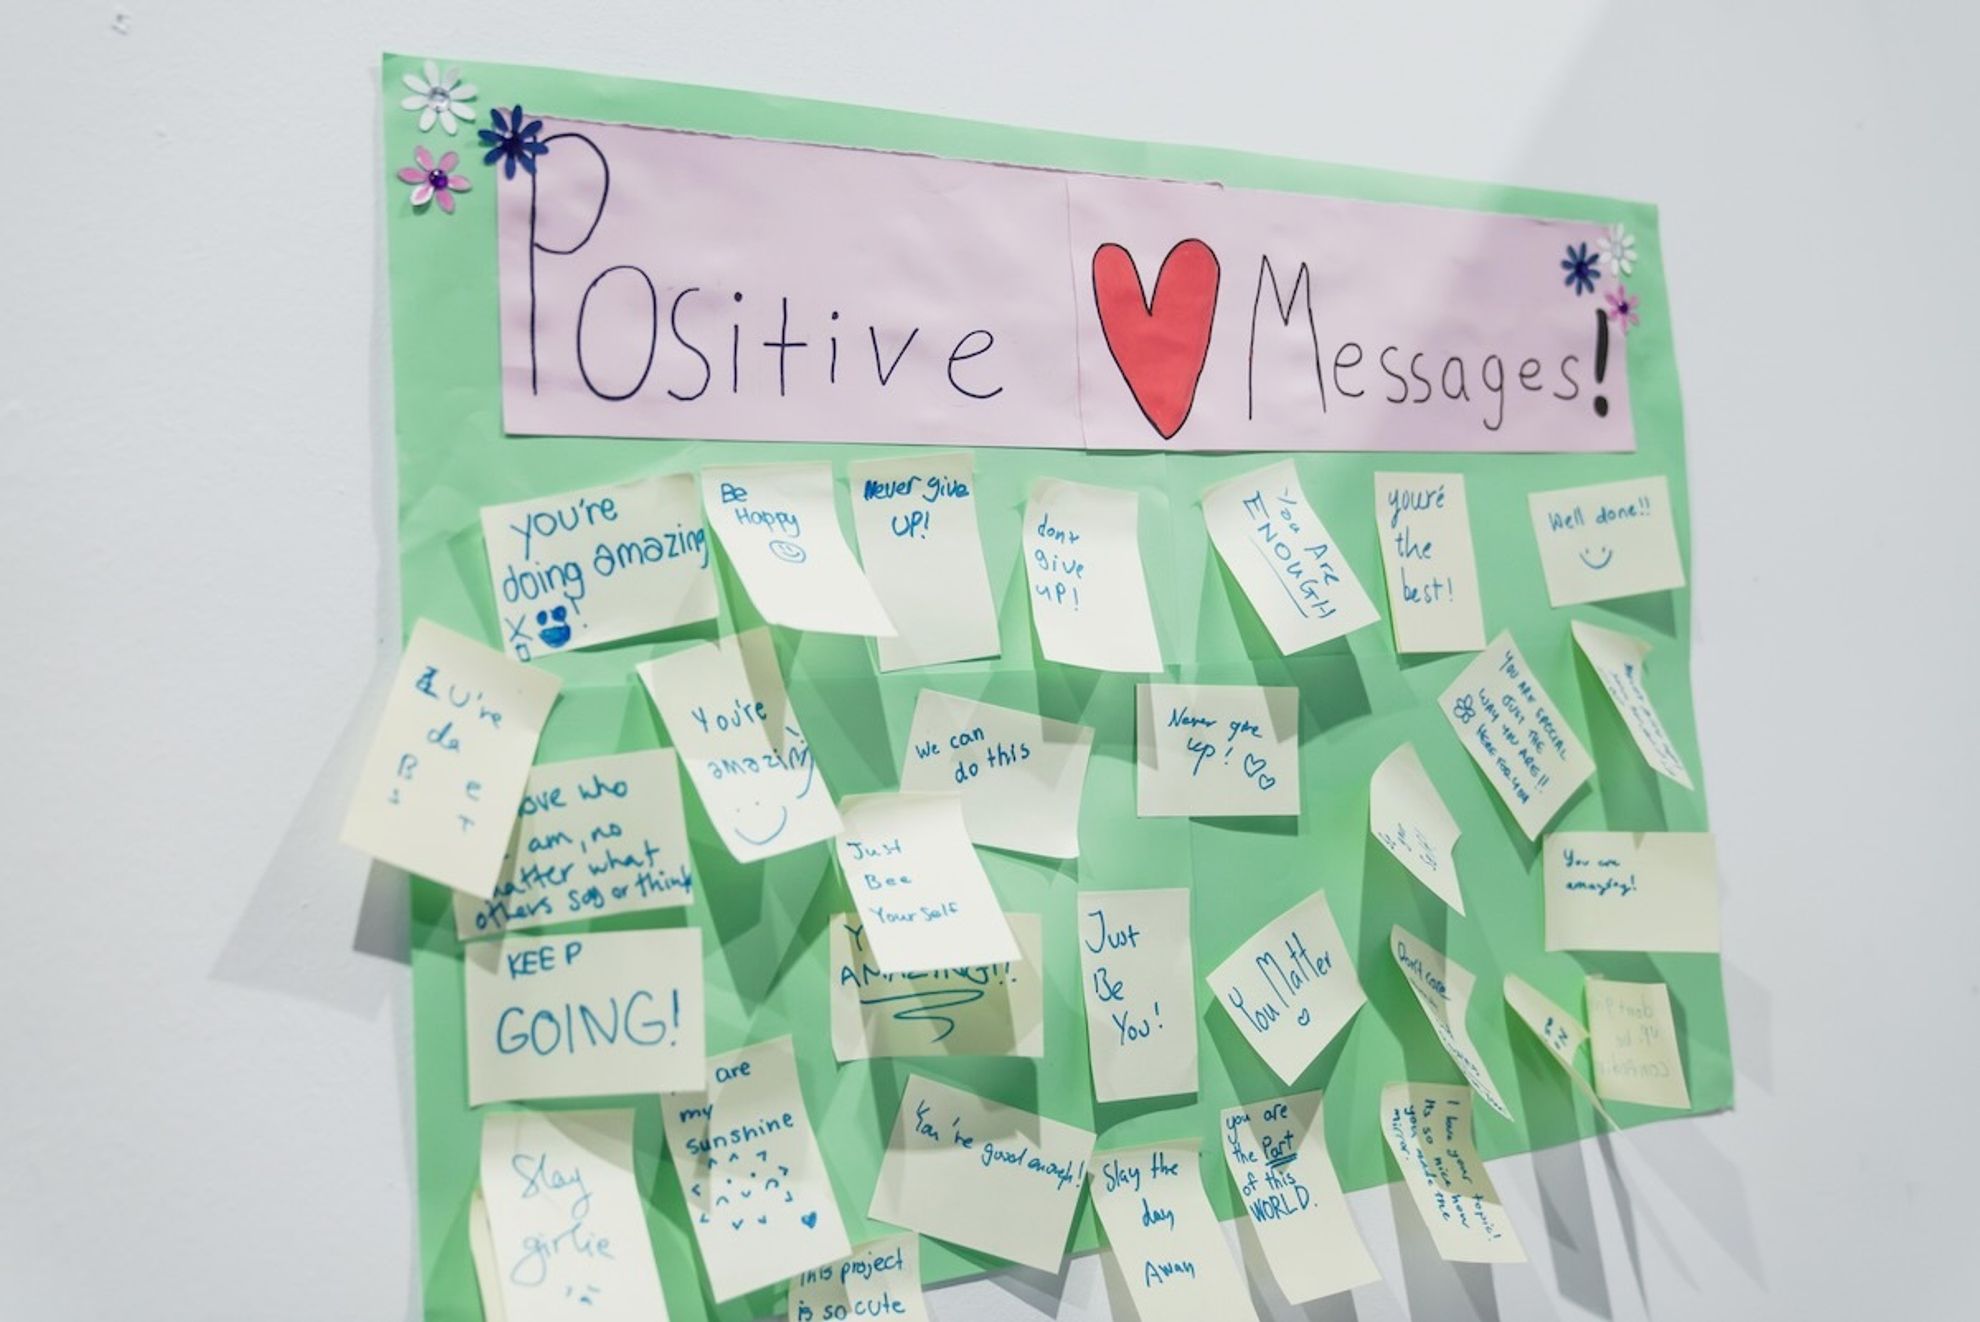 Positive Messages!
You're
doing amazing
Be
Happy
Never give
UP!
dont
give
up!
You Are
ENOUGH
you're
the
best!
Well done!!
U're
da
B e
s T
You're
amazing
We can
do this
Never give
up!
YOU ARE SPECIAL
JUST THE
WAY YOU ARE!!
HERE FOR YOU
ove who
am, no
atter what
others say or think
Just
Bee
Your Self
You are
amazing!
KEEP
GOING!
Y
AMAZING!!
Just
Be
You!
You Matter
Don't care
don't give
up. be
are
my
sunshine
Slay
girlie
You're good enough!
Slay the
day
Away
you are
the Part
of this
WORLD.
I love your topic!
Its so nice how
you made the
mirror.
This project
is so cute